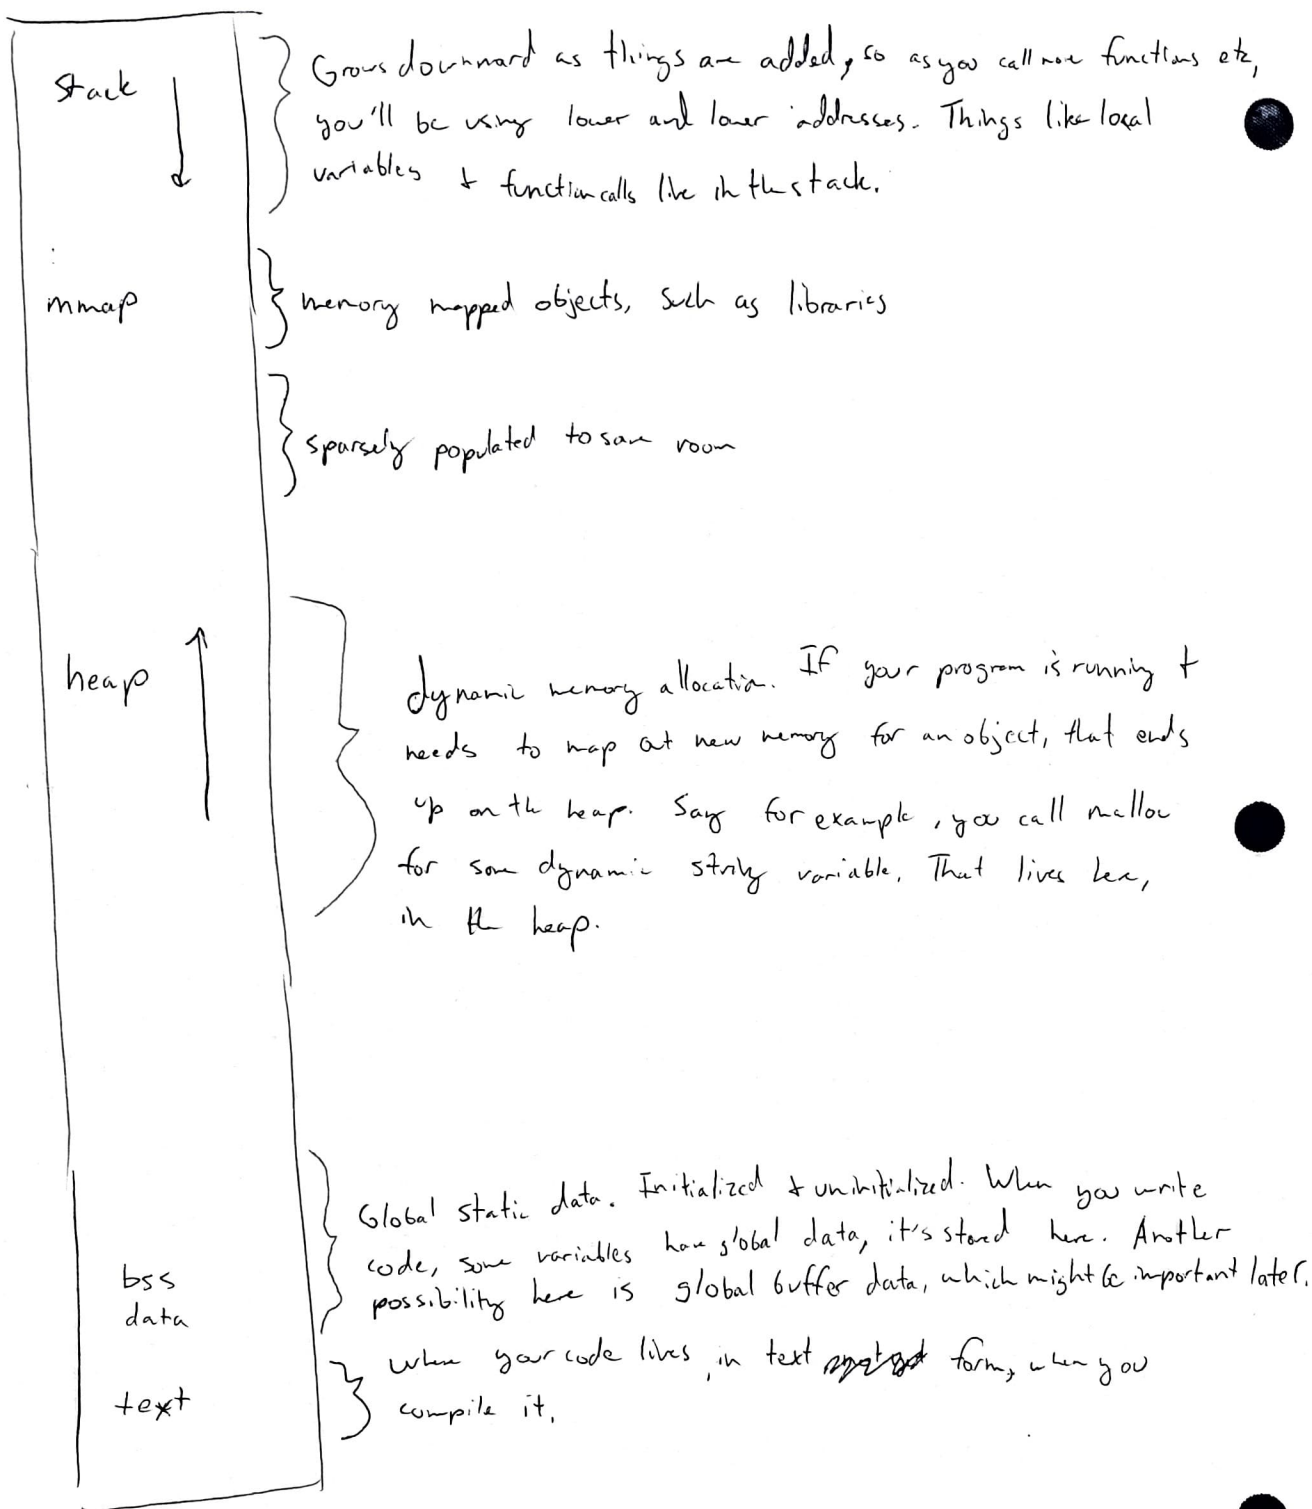 Stack
Grows downward as things are added, so as you call more functions etc,
you'll be using lower and lower addresses. Things like local
variables + function calls live in the stack.
mmap
memory mapped objects, such as libraries
sparsely populated to save room
heap
dynamic memory allocation. If your program is running +
needs to map out new memory for an object, that ends
up on the heap. Say for example, you call malloc
for some dynamic string variable. That lives here,
in the heap.
Global static data. Initialized + uninitialized. When you write
code, some variables have global data, it's stored here. Another
possibility here is global buffer data, which might be important later.
bss
data
where your code lives, in text form, when you
compile it.
text